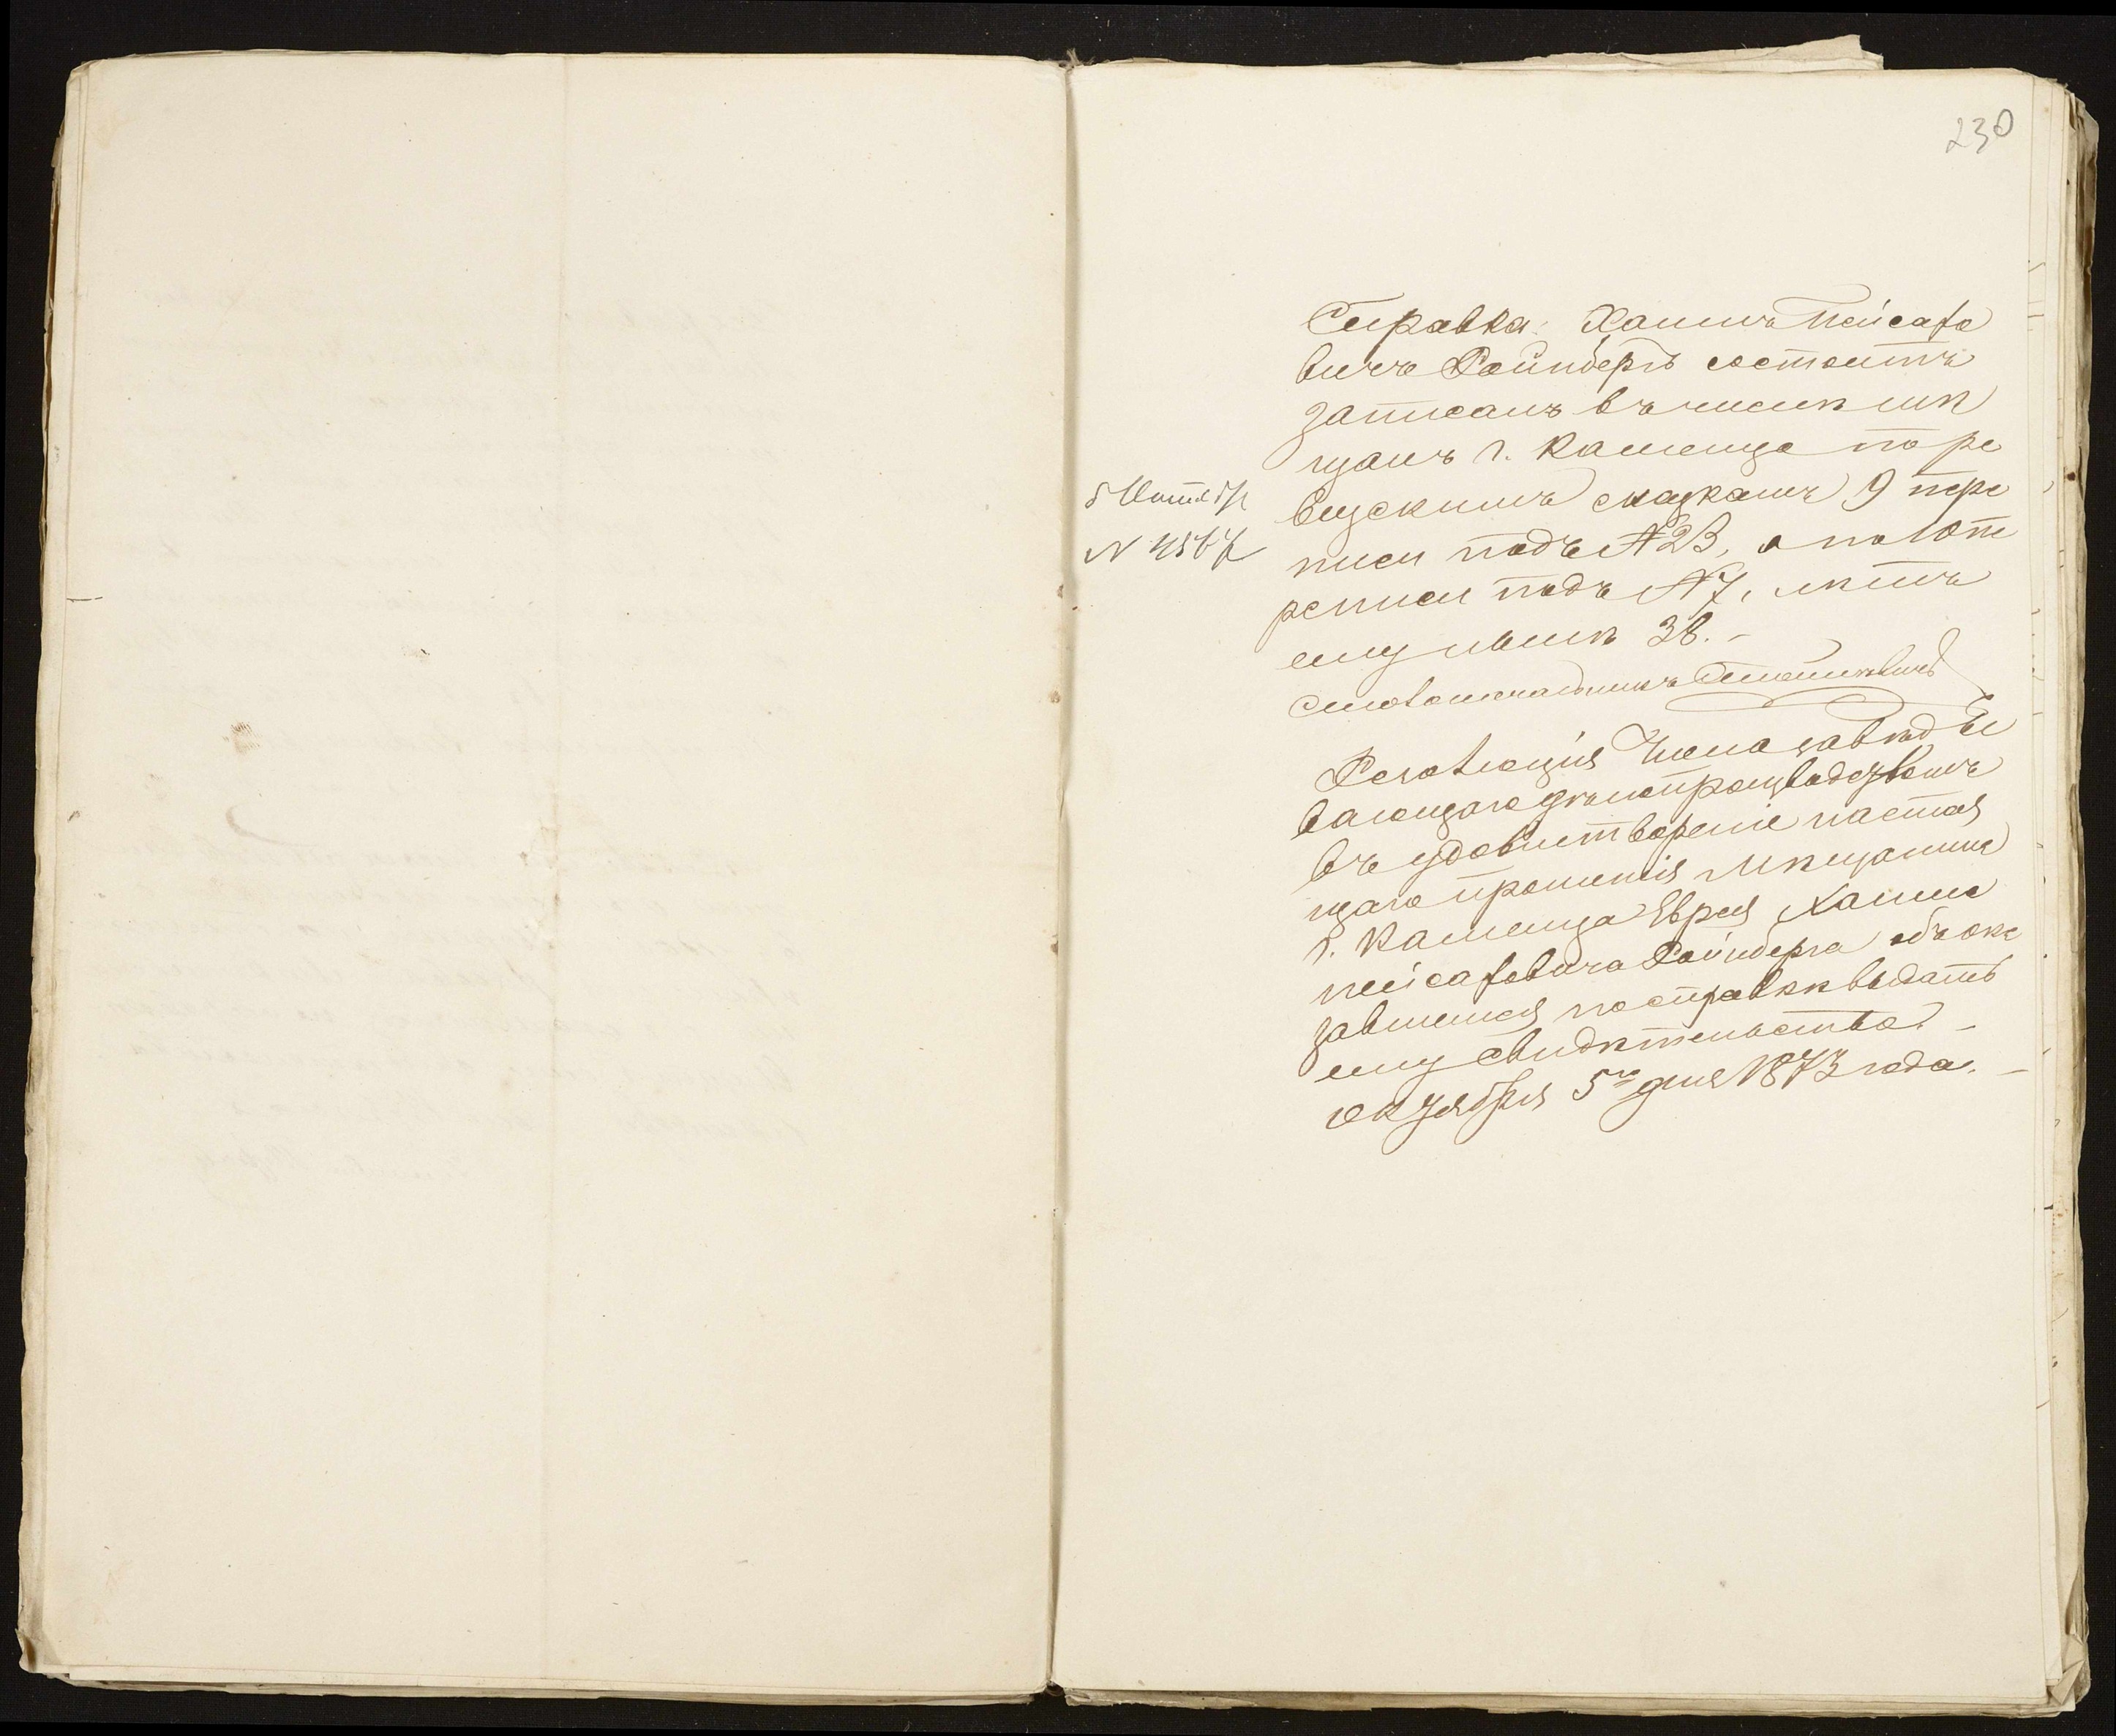 230
Справка: Хаимъ Пейсахо
вичъ Ройнбергъ состоитъ
записанъ въ числѣ мѣ
щанъ г. Каменца по ре
визскимъ сказкамъ 9 пере
писи подъ №23, а по 10 пе
реписи подъ №7, лѣтъ
ему нынѣ 38.-
5 Октября
№ 4567
Столоначальникъ
Резолюція Члена завѣды
вающаго дѣлопроизводствомъ
въ удовлетвореніе настоя
щаго прошенія Мѣщанина
г. Каменца Еврея Хаима
Пейсаховича Ройнберга объ ока
завшемся по справкѣ выдать
ему свидѣтельство. -
Октября 5го дня 1873 года. -